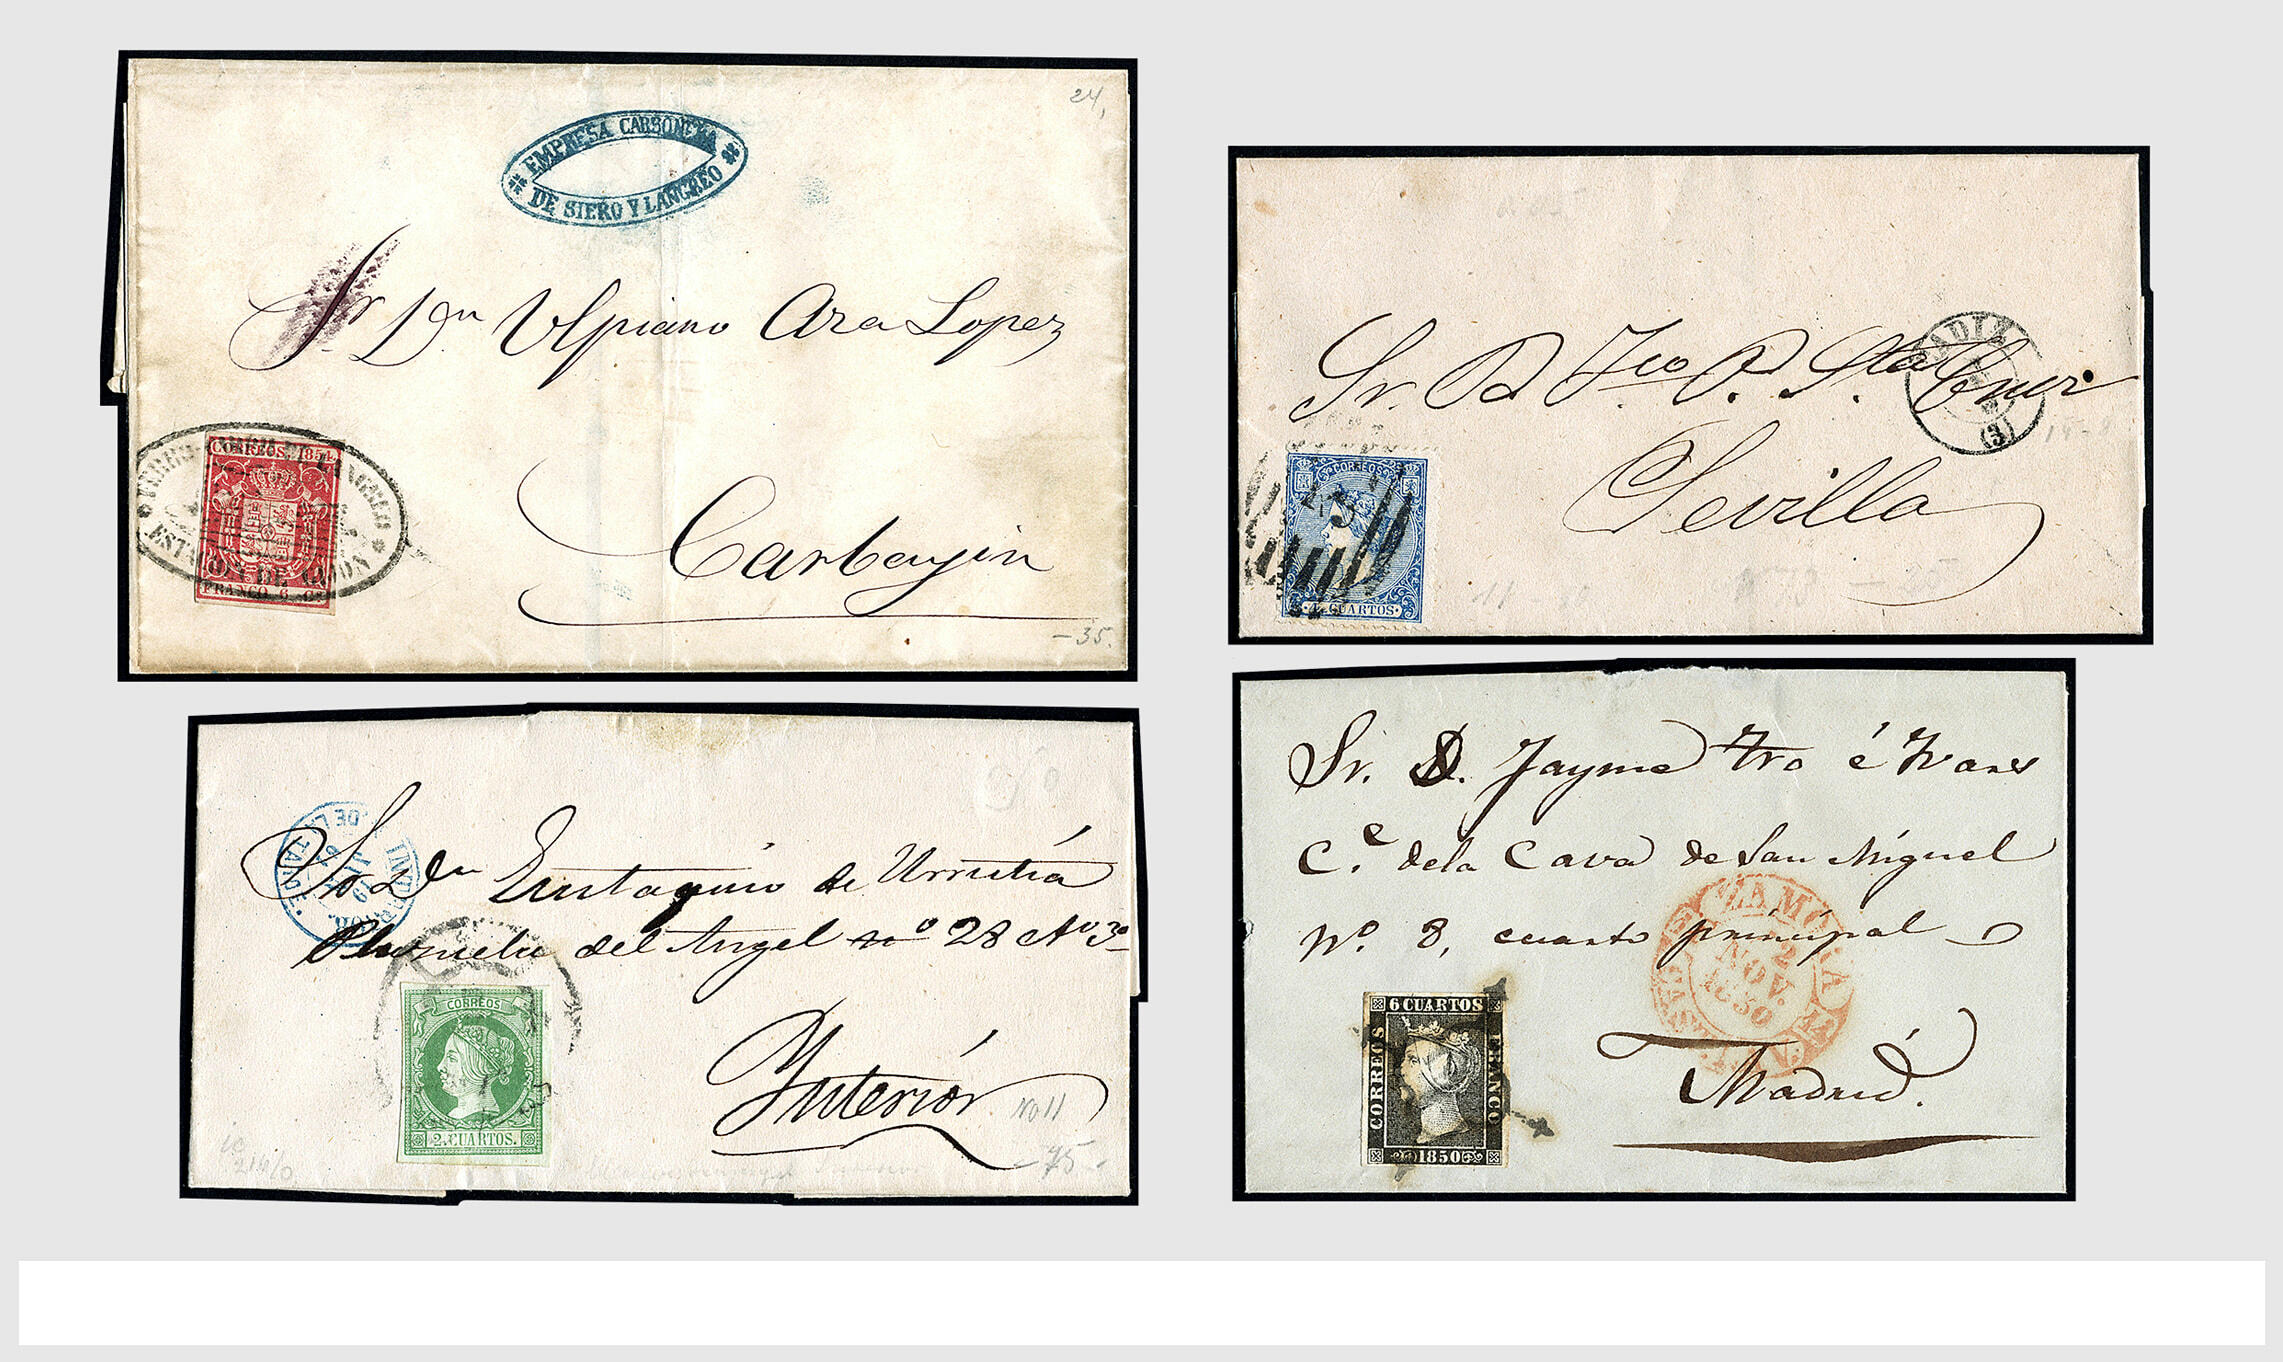 24,
EMPRESA CARBONERA
DE SIERO Y LANGREO
Sr. Dn Ulpiano Ara Lopez
CORREOS. 1854.
ESTACION DE GIJON
FRANCO. 6. Cs.
Carbayin
-35.
CADIZ
(3)
Sr. D Fco P. Sta Cruz
14-8
Sevilla
CORREOS
4 CUARTOS
DE LA TARDE
19
Sor Dn Eustaquio de Urrutia
Plazuela del Angel no 28 cto 3o
CORREOS
2. CUARTOS.
Interior
No 11
-75-
Sr. D. Jayme
C.e dela Cava de San Miguel
No. 8, cuarto principal
ZAMORA
2
NOV.
1850
6 CUARTOS
CORREOS
FRANCO
1850
Madrid.